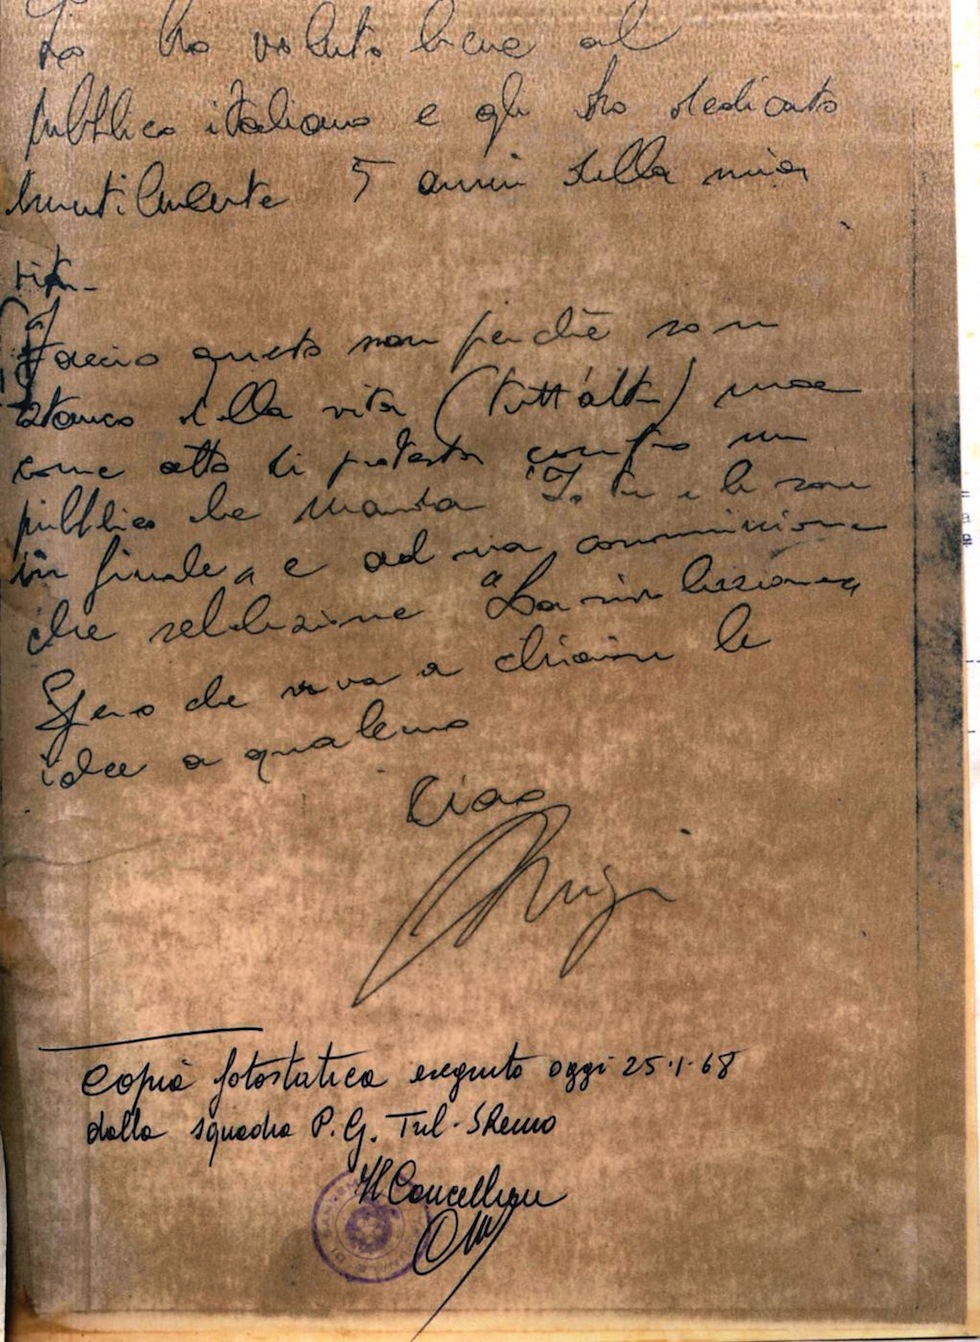 Io ho voluto bene al
pubblico italiano e gli ho dedicato
inutilmente 5 anni della mia
vita.
Faccio questo non perchè son
stanco della vita (tutt'altro) ma
come atto di protesta contro un
pubblico che manda "Io tu e le rose
in finale, e ad una commissione
che seleziona "La rivoluzione„
Spero che serva a chiarire le
idee a qualcuno
Ciao
Luigi
Copia fotostatica eseguita oggi 25·1·68
dalla squadra P.G. Trib. SRemo
Il Cancelliere